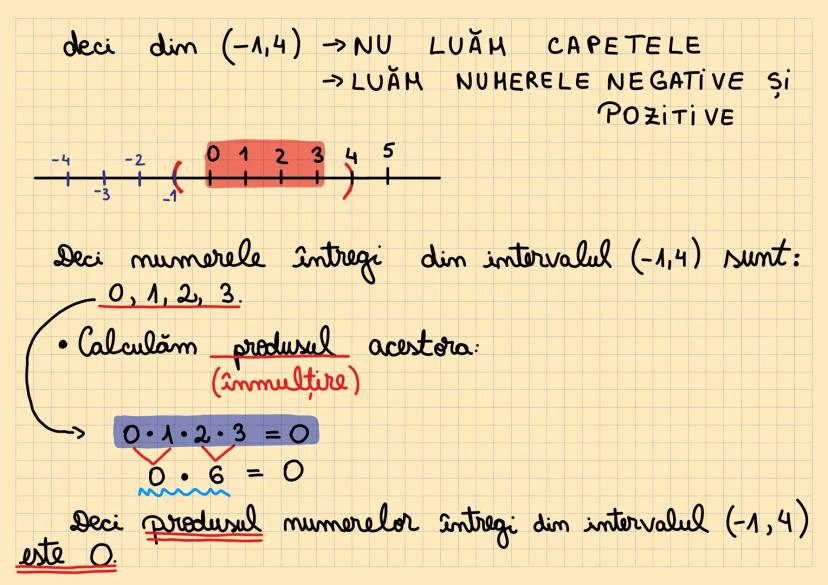 deci din (-1,4) → NU LUĂM CAPETELE
→ LUĂM NUMERELE NEGATIVE ȘI
POZITIVE
-4 -3 -2 -1 ( 0 1 2 3 4 ) 5
Deci numerele întregi din intervalul (-1,4) sunt:
0, 1, 2, 3.
• Calculăm produsul acestora:
(înmulțire)
0 · 1 · 2 · 3 = 0
0 · 6 = 0
Deci produsul numerelor întregi din intervalul (-1,4)
este 0.